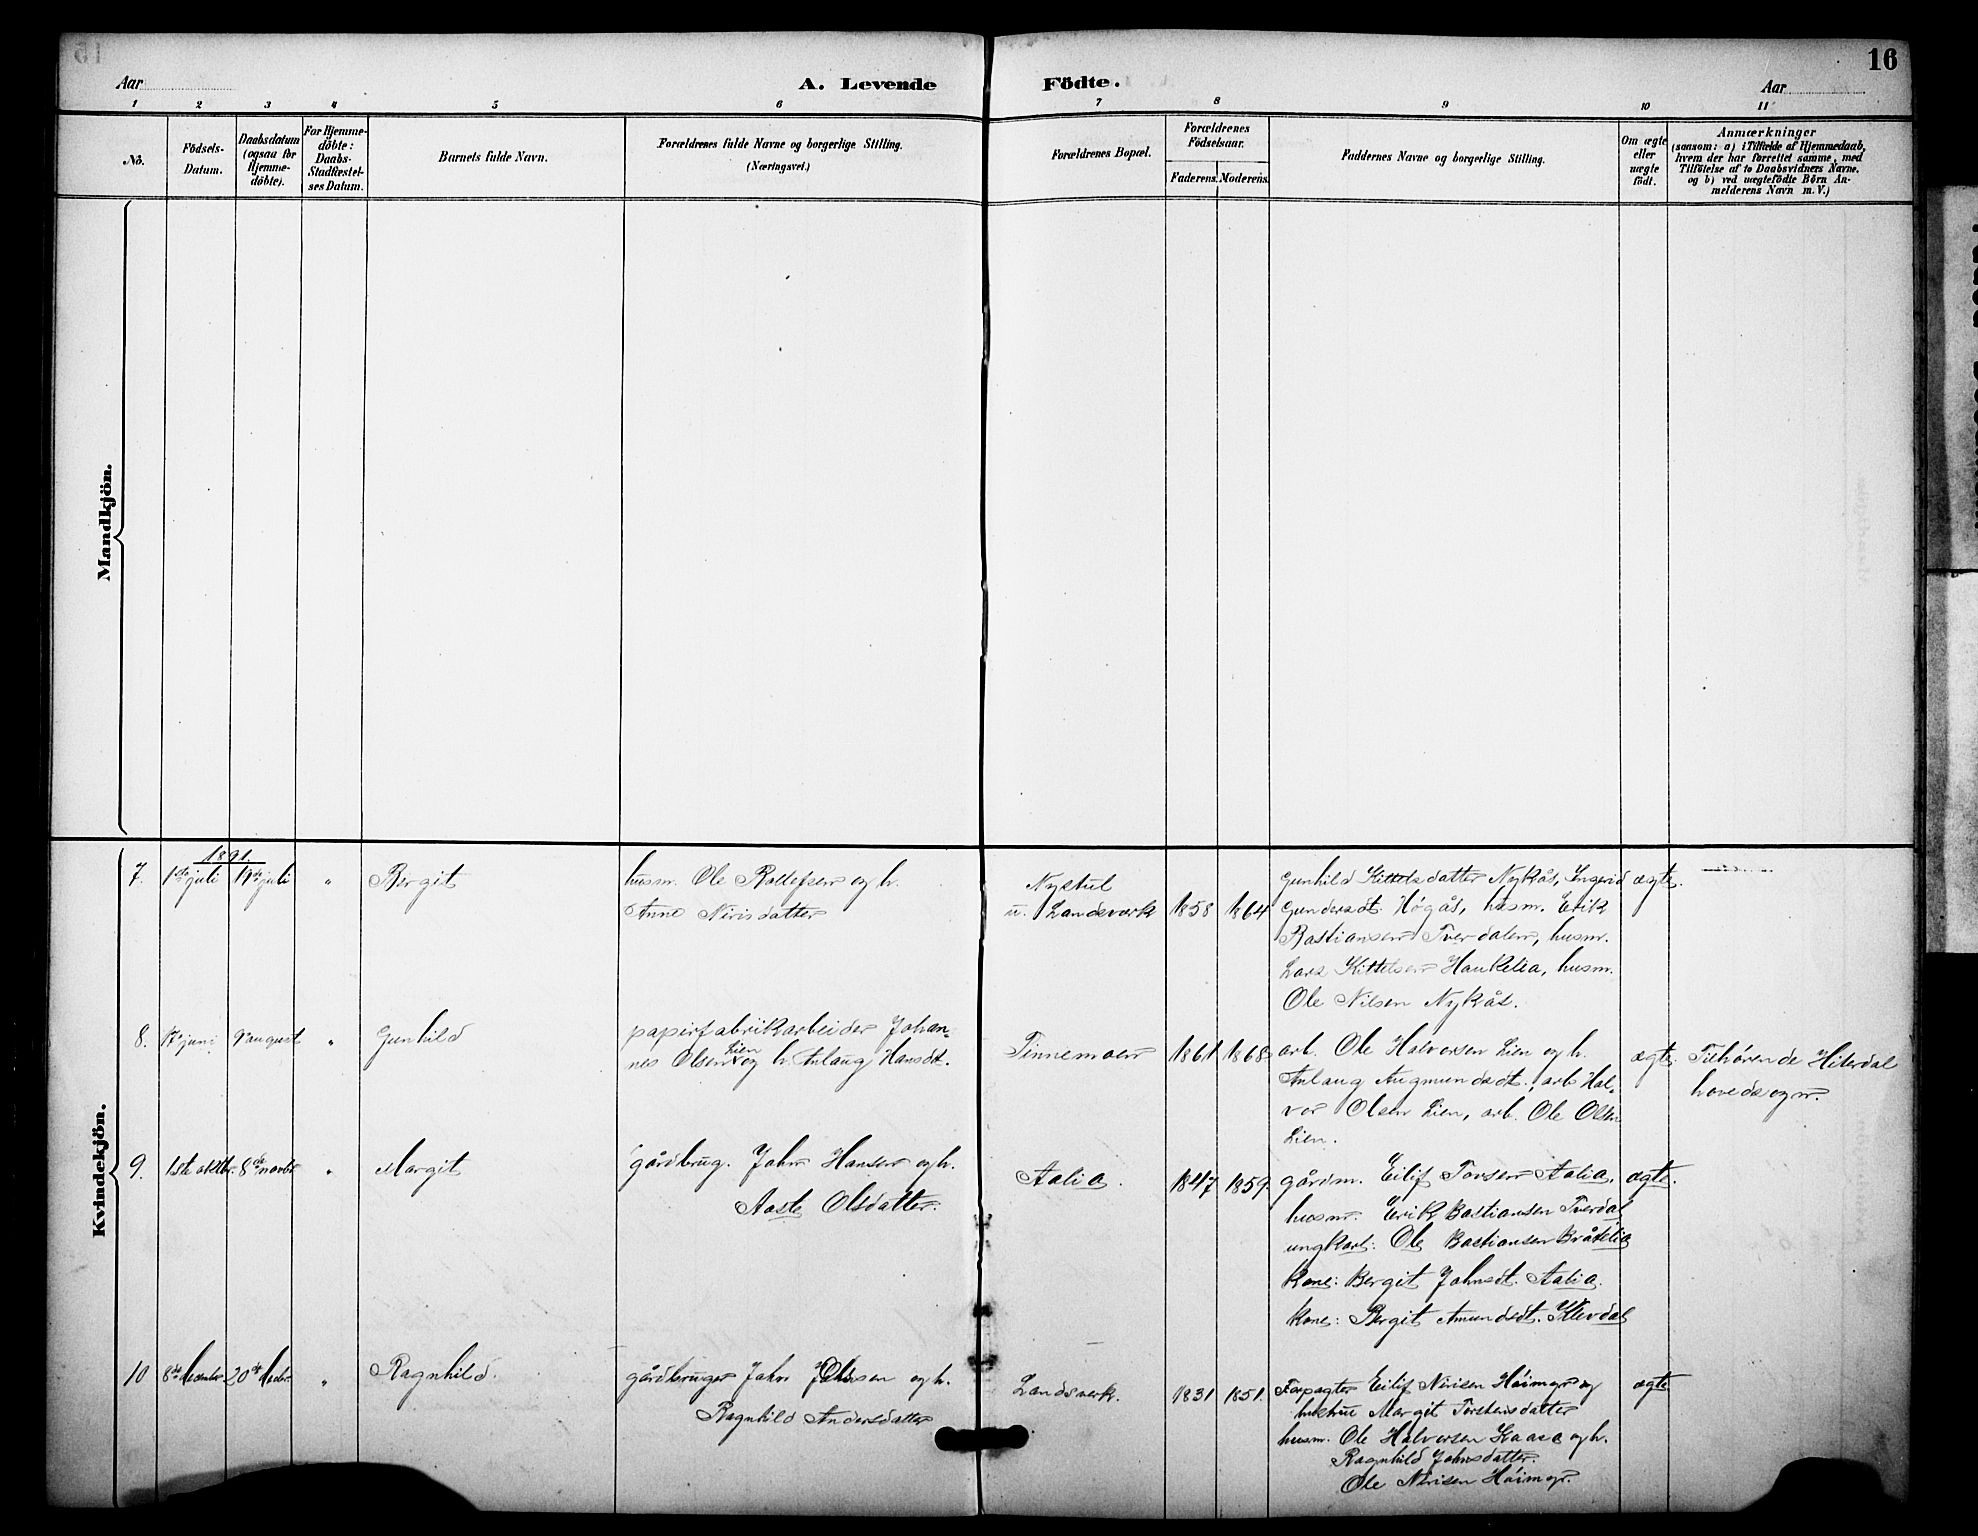 16
Aar
A. Levende Födte.
Aar
1 2 3 4 5 6 7 8 9 10 11
No.
Födsels-
Datum.
Daabsdatum
(ogsaa for
Hjemme-
döbte).
For Hjemme-
döbte:
Daabs-
Stadfæstel-
ses Datum.
Barnets fulde Navn.
Forældrenes fulde Navne og borgerlige Stilling.
(Næringsvei.)
Forældrenes Bopæl.
Forældrenes
Födselsaar.
Faderens. Moderens.
Faddernes Navne og borgerlige Stilling.
Om ægte
eller
uægte
födt.
Anmærkninger
(saasom: a) i Tilfælde af Hjemmedaab,
hvem der har forrettet samme, med
Tilföielse af to Daabsvidners Navne.
og b) ved uægtefödte Börn An-
melderens Navn m. V.)
Mandkjön.
Kvindekjön.
1891.
7. 1ste juli 19de juli " Bergit
husm. Ole Rollefsen og h.
Anne Nirisdatter
Nystul
u. Landsverk
1858 1864
Gunhild Kittelsdatter Nykås, Ingerid
Gundersdt. Høgås, husm. Erik
Bastiansen Tverdalen, husm.
Lars Kittelsen Haukelia, husm.
Ole Nilsen Nykås.
ægte.
8. 17de juni 9de august " Gunhild
papirfabrikarbeider Johan-
nes Olsen Lien og h. Anlaug Hansdt.
Tinnemoen
1861 1868
arb. Ole Halvorsen Lien og h.
Anlaug Augmundsdt., arb Hal-
vor Olsen Lien, arb. Ole Olsen
Lien.
ægte.
Tilhørende Hiterdal
hovedsogn.
9. 1ste oktbr. 8de novbr " Margit
gårdbrug. John Hansen og h.
Aaste Olsdatter.
Aalia.
1847 1859.
gårdm. Eilif Tovsen Aalia.
husm. Erik Bastiansen Tverdal
ungkarl: Ole Bastiansen Bråtelia
kone: Bergit Johnsdt. Aalia.
kone: Bergit Amundsdt. Klevdal
ægte.
10 8de decembr. 20de decbr. " Ragnhild.
gårdbruger John Olsen og h.
Ragnhild Andersdatter
Landsverk.
1831 1851.
Forpagter Eilif Nirisen Høimyr og
hustru Margit Torstensdatter
husm. Ole Halvorsen Kaasa og h.
Ragnhild Johnsdatter.
Ole Nirisen Høimyr.
ægte